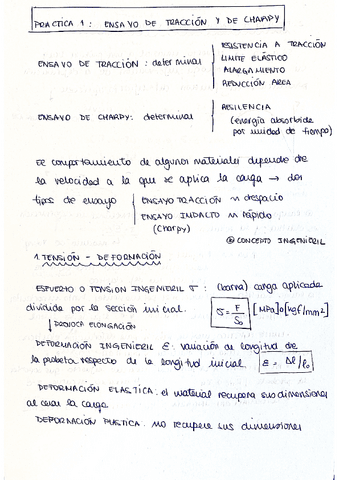 PRACTICA 1: ENSAYO DE TRACCIÓN Y DE CHARPY
ENSAYO DE TRACCIÓN: determinar
RESISTENCIA A TRACCIÓN
LIMITE ELÁSTICO
ALARGAMIENTO
REDUCCIÓN AREA
ENSAYO DE CHARPY: determinar
RESILENCIA
(energía absorbida
por unidad de tiempo)
El comportamiento de algunos materiales depende de
la velocidad a la que se aplica la carga → dos
tipos de ensayo
ENSAYO TRACCIÓN ~ despacio
ENSAYO IMPACTO ~ rápido
(Charpy)
@ CONCEPTO INGENIERIL
1. TENSIÓN - DEFORMACIÓN
ESFUERTO O TENSION INGENIERIL σ: (barra) carga aplicada
dividida por la sección inicial. σ = F/S₀ [MPa] o [kgf/mm²]
↓ PROVOCA ELONGACIÓN
DEFORMACIÓN INGENIERIL ε: variación de longitud de
la probeta respecto de la longitud inicial. ε = Δl/l₀
DEFORMACIÓN ELASTICA: el material recupera sus dimensiones
al cesar la carga
DEFORMACIÓN PLASTICA: no recupera sus dimensiones